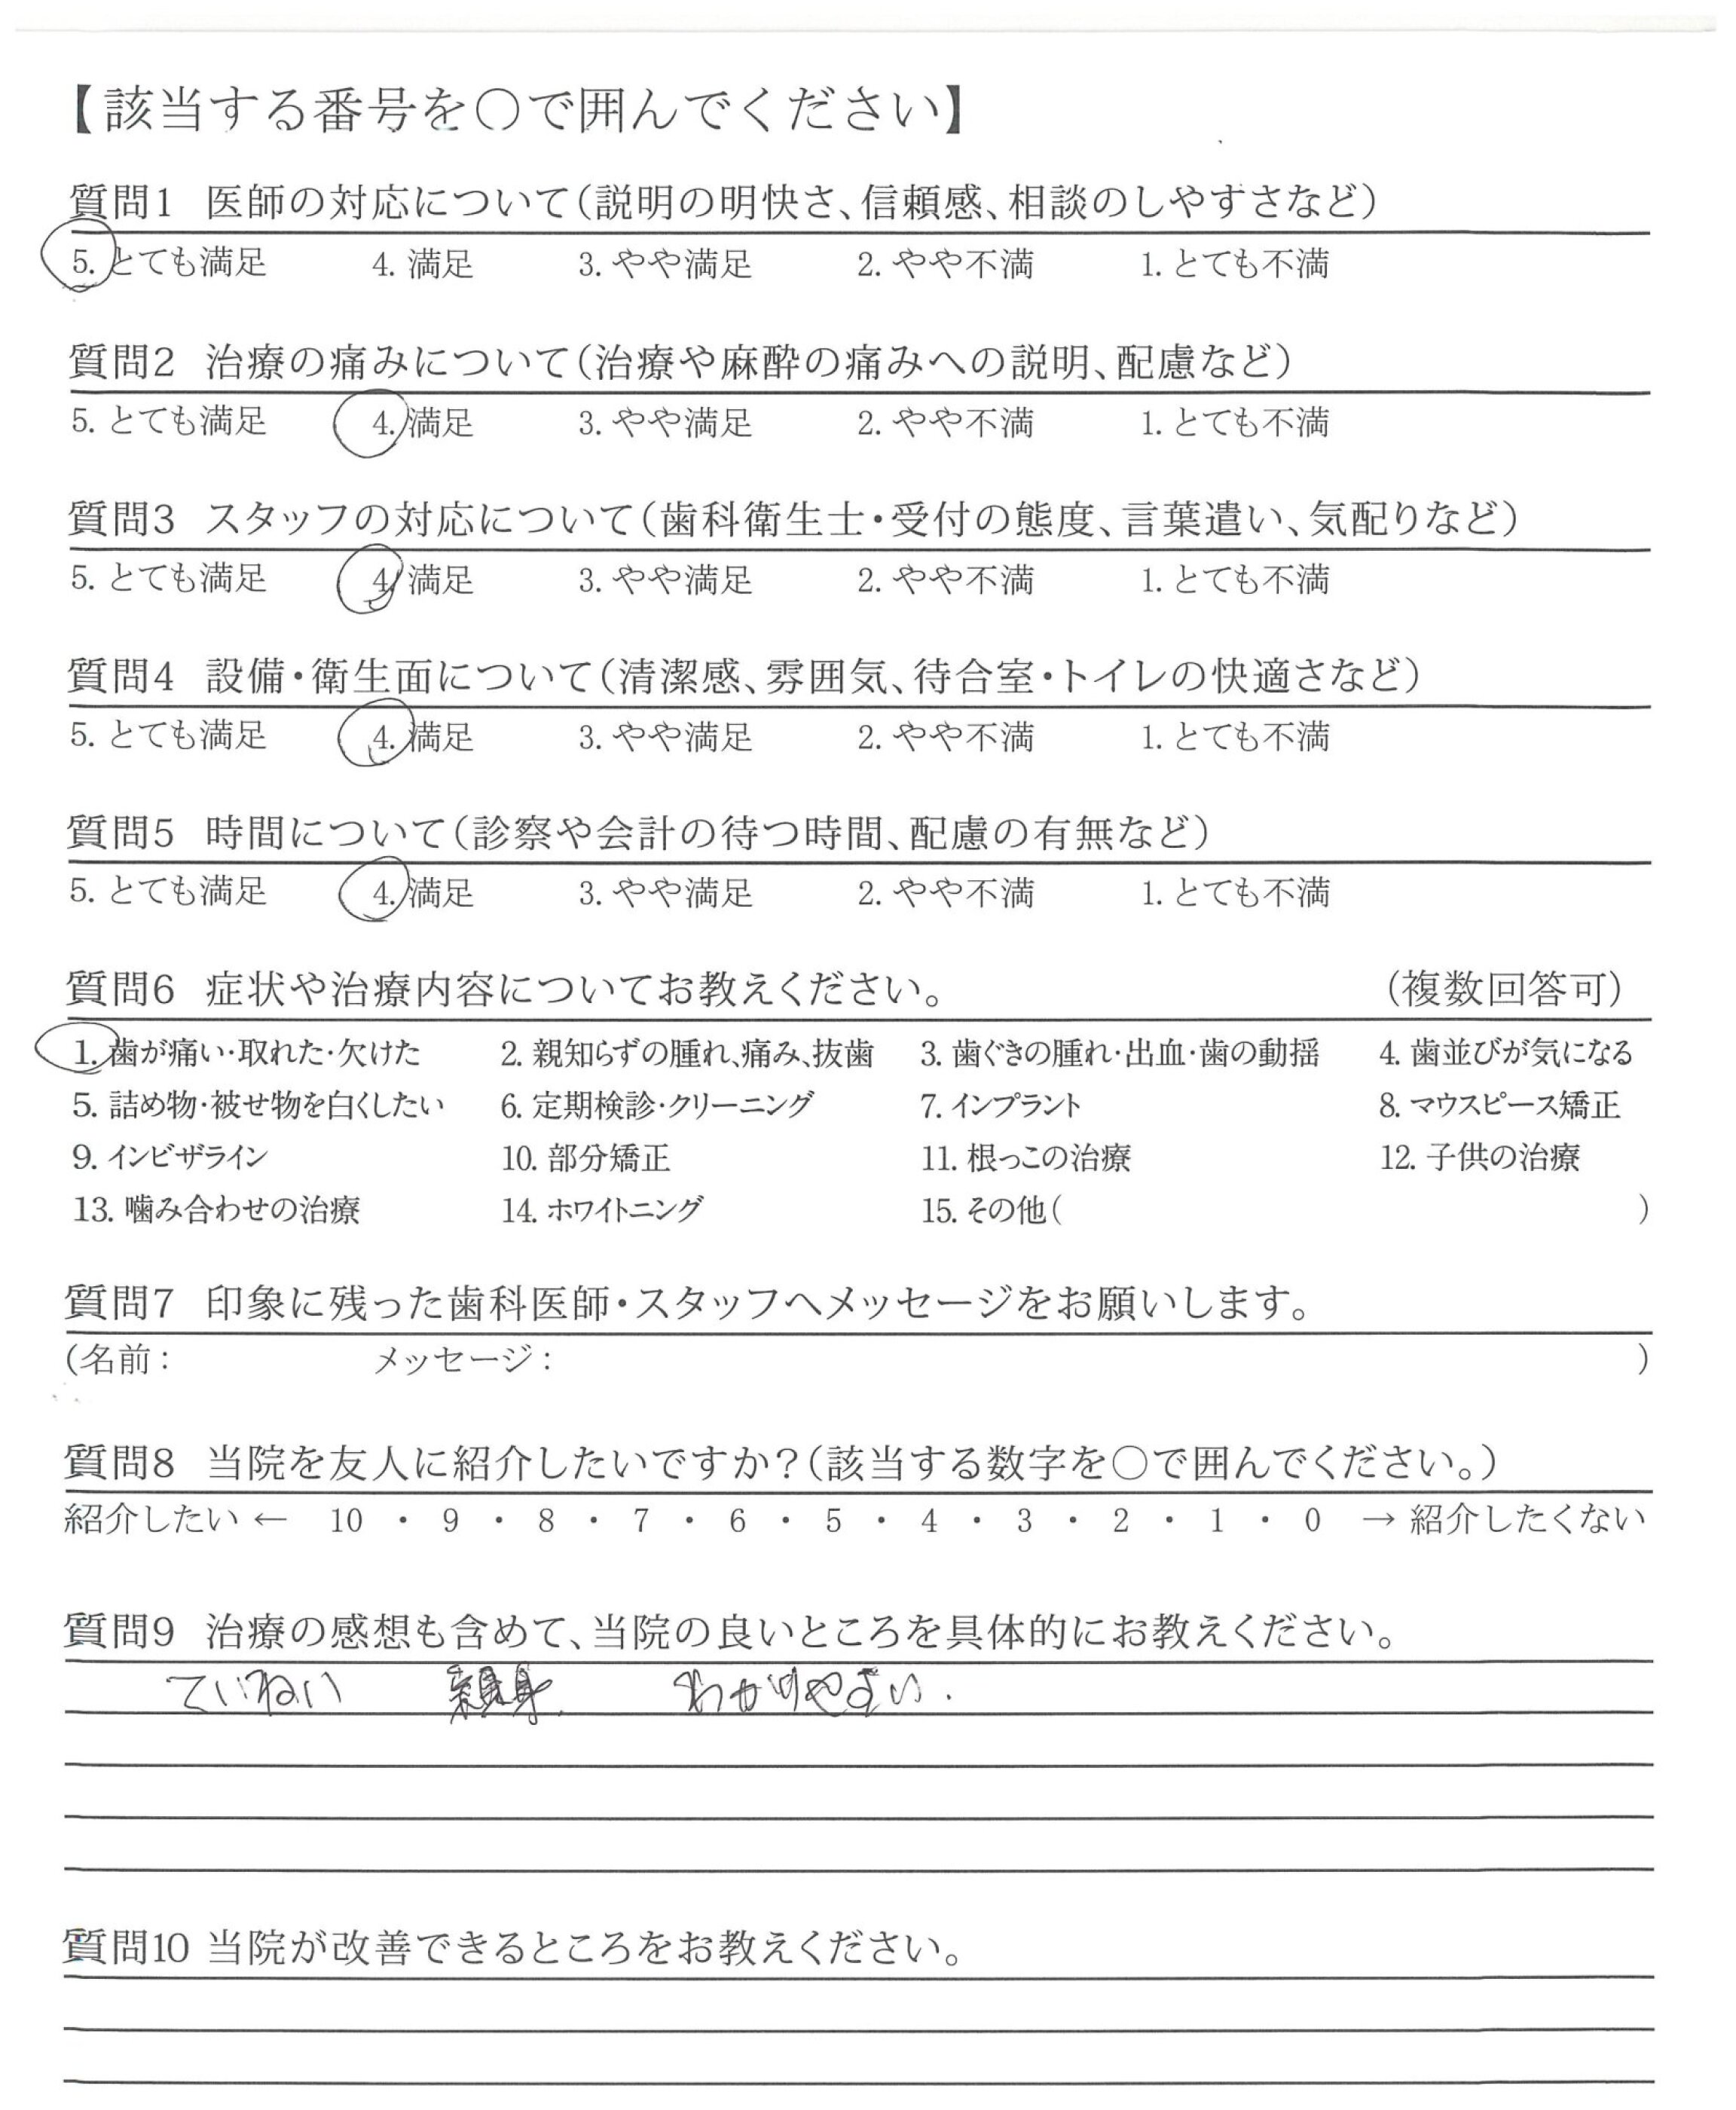 【該当する番号を○で囲んでください】
質問1 医師の対応について(説明の明快さ、信頼感、相談のしやすさなど)
5. とても満足 4. 満足 3. やや満足 2. やや不満 1. とても不満
質問2 治療の痛みについて(治療や麻酔の痛みへの説明、配慮など)
5. とても満足 4. 満足 3. やや満足 2. やや不満 1. とても不満
質問3 スタッフの対応について(歯科衛生士・受付の態度、言葉遣い、気配りなど)
5. とても満足 4. 満足 3. やや満足 2. やや不満 1. とても不満
質問4 設備・衛生面について(清潔感、雰囲気、待合室・トイレの快適さなど)
5. とても満足 4. 満足 3. やや満足 2. やや不満 1. とても不満
質問5 時間について(診察や会計の待つ時間、配慮の有無など)
5. とても満足 4. 満足 3. やや満足 2. やや不満 1. とても不満
質問6 症状や治療内容についてお教えください。 (複数回答可)
1. 歯が痛い・取れた・欠けた 2. 親知らずの腫れ、痛み、抜歯 3. 歯ぐきの腫れ・出血・歯の動揺 4. 歯並びが気になる
5. 詰め物・被せ物を白くしたい 6. 定期検診・クリーニング 7. インプラント 8. マウスピース矯正
9. インビザライン 10. 部分矯正 11. 根っこの治療 12. 子供の治療
13. 噛み合わせの治療 14. ホワイトニング 15. その他( )
質問7 印象に残った歯科医師・スタッフへメッセージをお願いします。
(名前: メッセージ: )
質問8 当院を友人に紹介したいですか?(該当する数字を○で囲んでください。)
紹介したい ← 10 ・ 9 ・ 8 ・ 7 ・ 6 ・ 5 ・ 4 ・ 3 ・ 2 ・ 1 ・ 0 → 紹介したくない
質問9 治療の感想も含めて、当院の良いところを具体的にお教えください。
ていねい 親身. わかりやすい.
質問10 当院が改善できるところをお教えください。